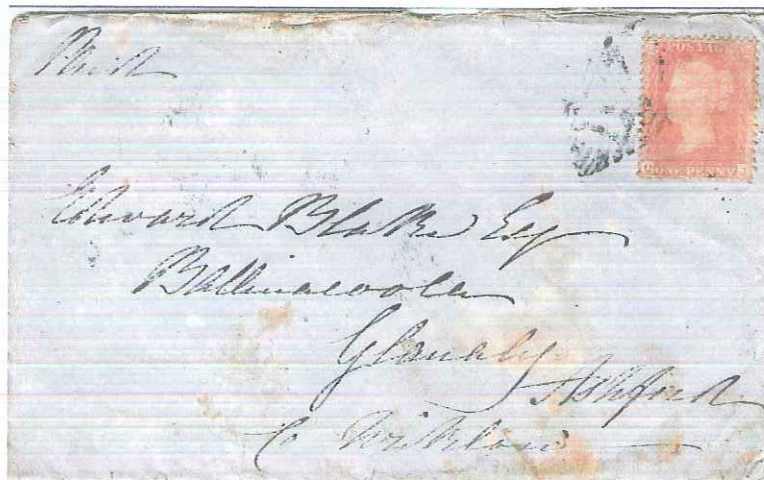 POSTAGE
ONE PENNY
Edward Blake Esq
Ballinacoola
Glanealy
Ashford
Co Wicklow